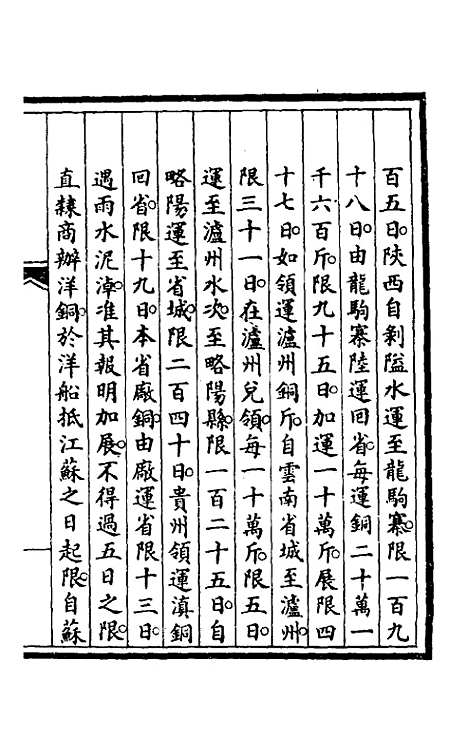 百五日。陝西自剥隘水運至龍駒寨。限一百九
十八日。由龍駒寨陸運回省。每運銅二十萬一
千六百斤。限九十五日。加運一十萬斤。展限四
十七日。如領運瀘州銅斤。自雲南省城至瀘州。
限三十一日。在瀘州兌領。每一十萬斤。限五日。
運至瀘州水次。至略陽縣。限一百二十五日。自
略陽運至省城。限二百四十日。貴州領運滇銅
回省。限十九日。本省廠銅。由廠運省限十三日。
遇雨水泥淖。准其報明加展。不得過五日之限。
直隸商辦洋銅。於洋船抵江蘇之日起限。自蘇